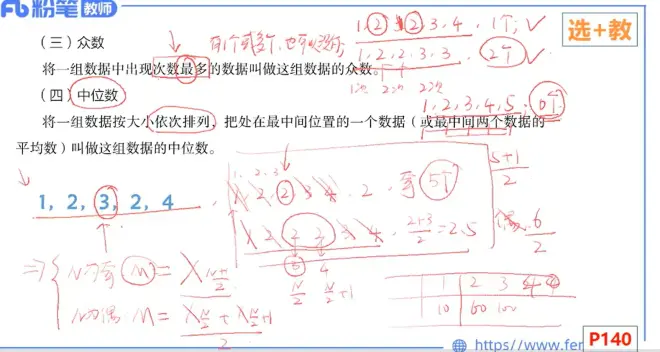 粉笔教师
选+教
（三）众数
有1个或多个，也可以没有；
1, 2, 2, 3, 4, 1个; ✓
1, 2, 2, 3, 3, 2个 ✓
将一组数据中出现次数最多的数据叫做这组数据的众数。
1次 2次 2次
（四）中位数
1, 2, 3, 4, 5; 0个
将一组数据按大小依次排列，把处在最中间位置的一个数据（或最中间两个数据的
平均数）叫做这组数据的中位数。
5+1/2
1. 2. 3
1，2，3，2，4
1 2 2 3 4 . 2 . 奇 5个
1 2 2 3 3 4 . 2+3/2 = 2.5
偶. 6/2
3 4
N/2 N/2+1
⇒ { N为奇 M = X N+1/2
N为偶 M = X N/2 + X N/2+1 / 2
1 2 3 4
10 60 100
https://www.fer
P140